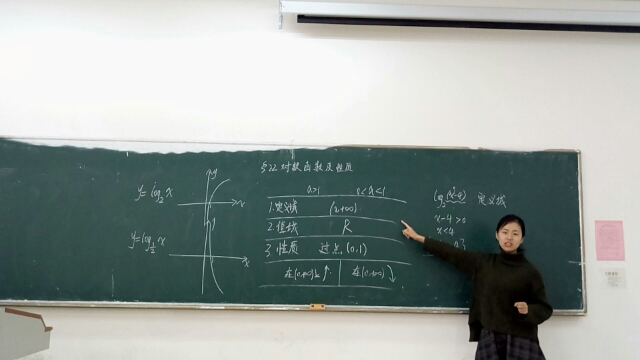 §2.2 对数函数及性质
y=log₂x
y
x
y=log½x
x
a>1 0<a<1
1.定义域 (0,+∞)
2.值域 R
3.性质 过点(0,1)
在(0,+∞)上↑ 在(0,+∞)↓
定义域
x-4>0
x<4